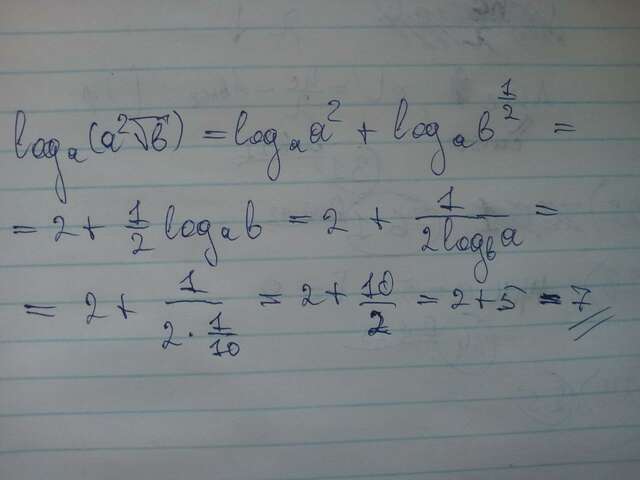 logₐ(a²√b) = logₐa² + logₐb^(1/2) =
= 2 + 1/2 logₐb = 2 + 1/(2log_b a) =
= 2 + 1/(2·1/10) = 2 + 10/2 = 2+5 = 7